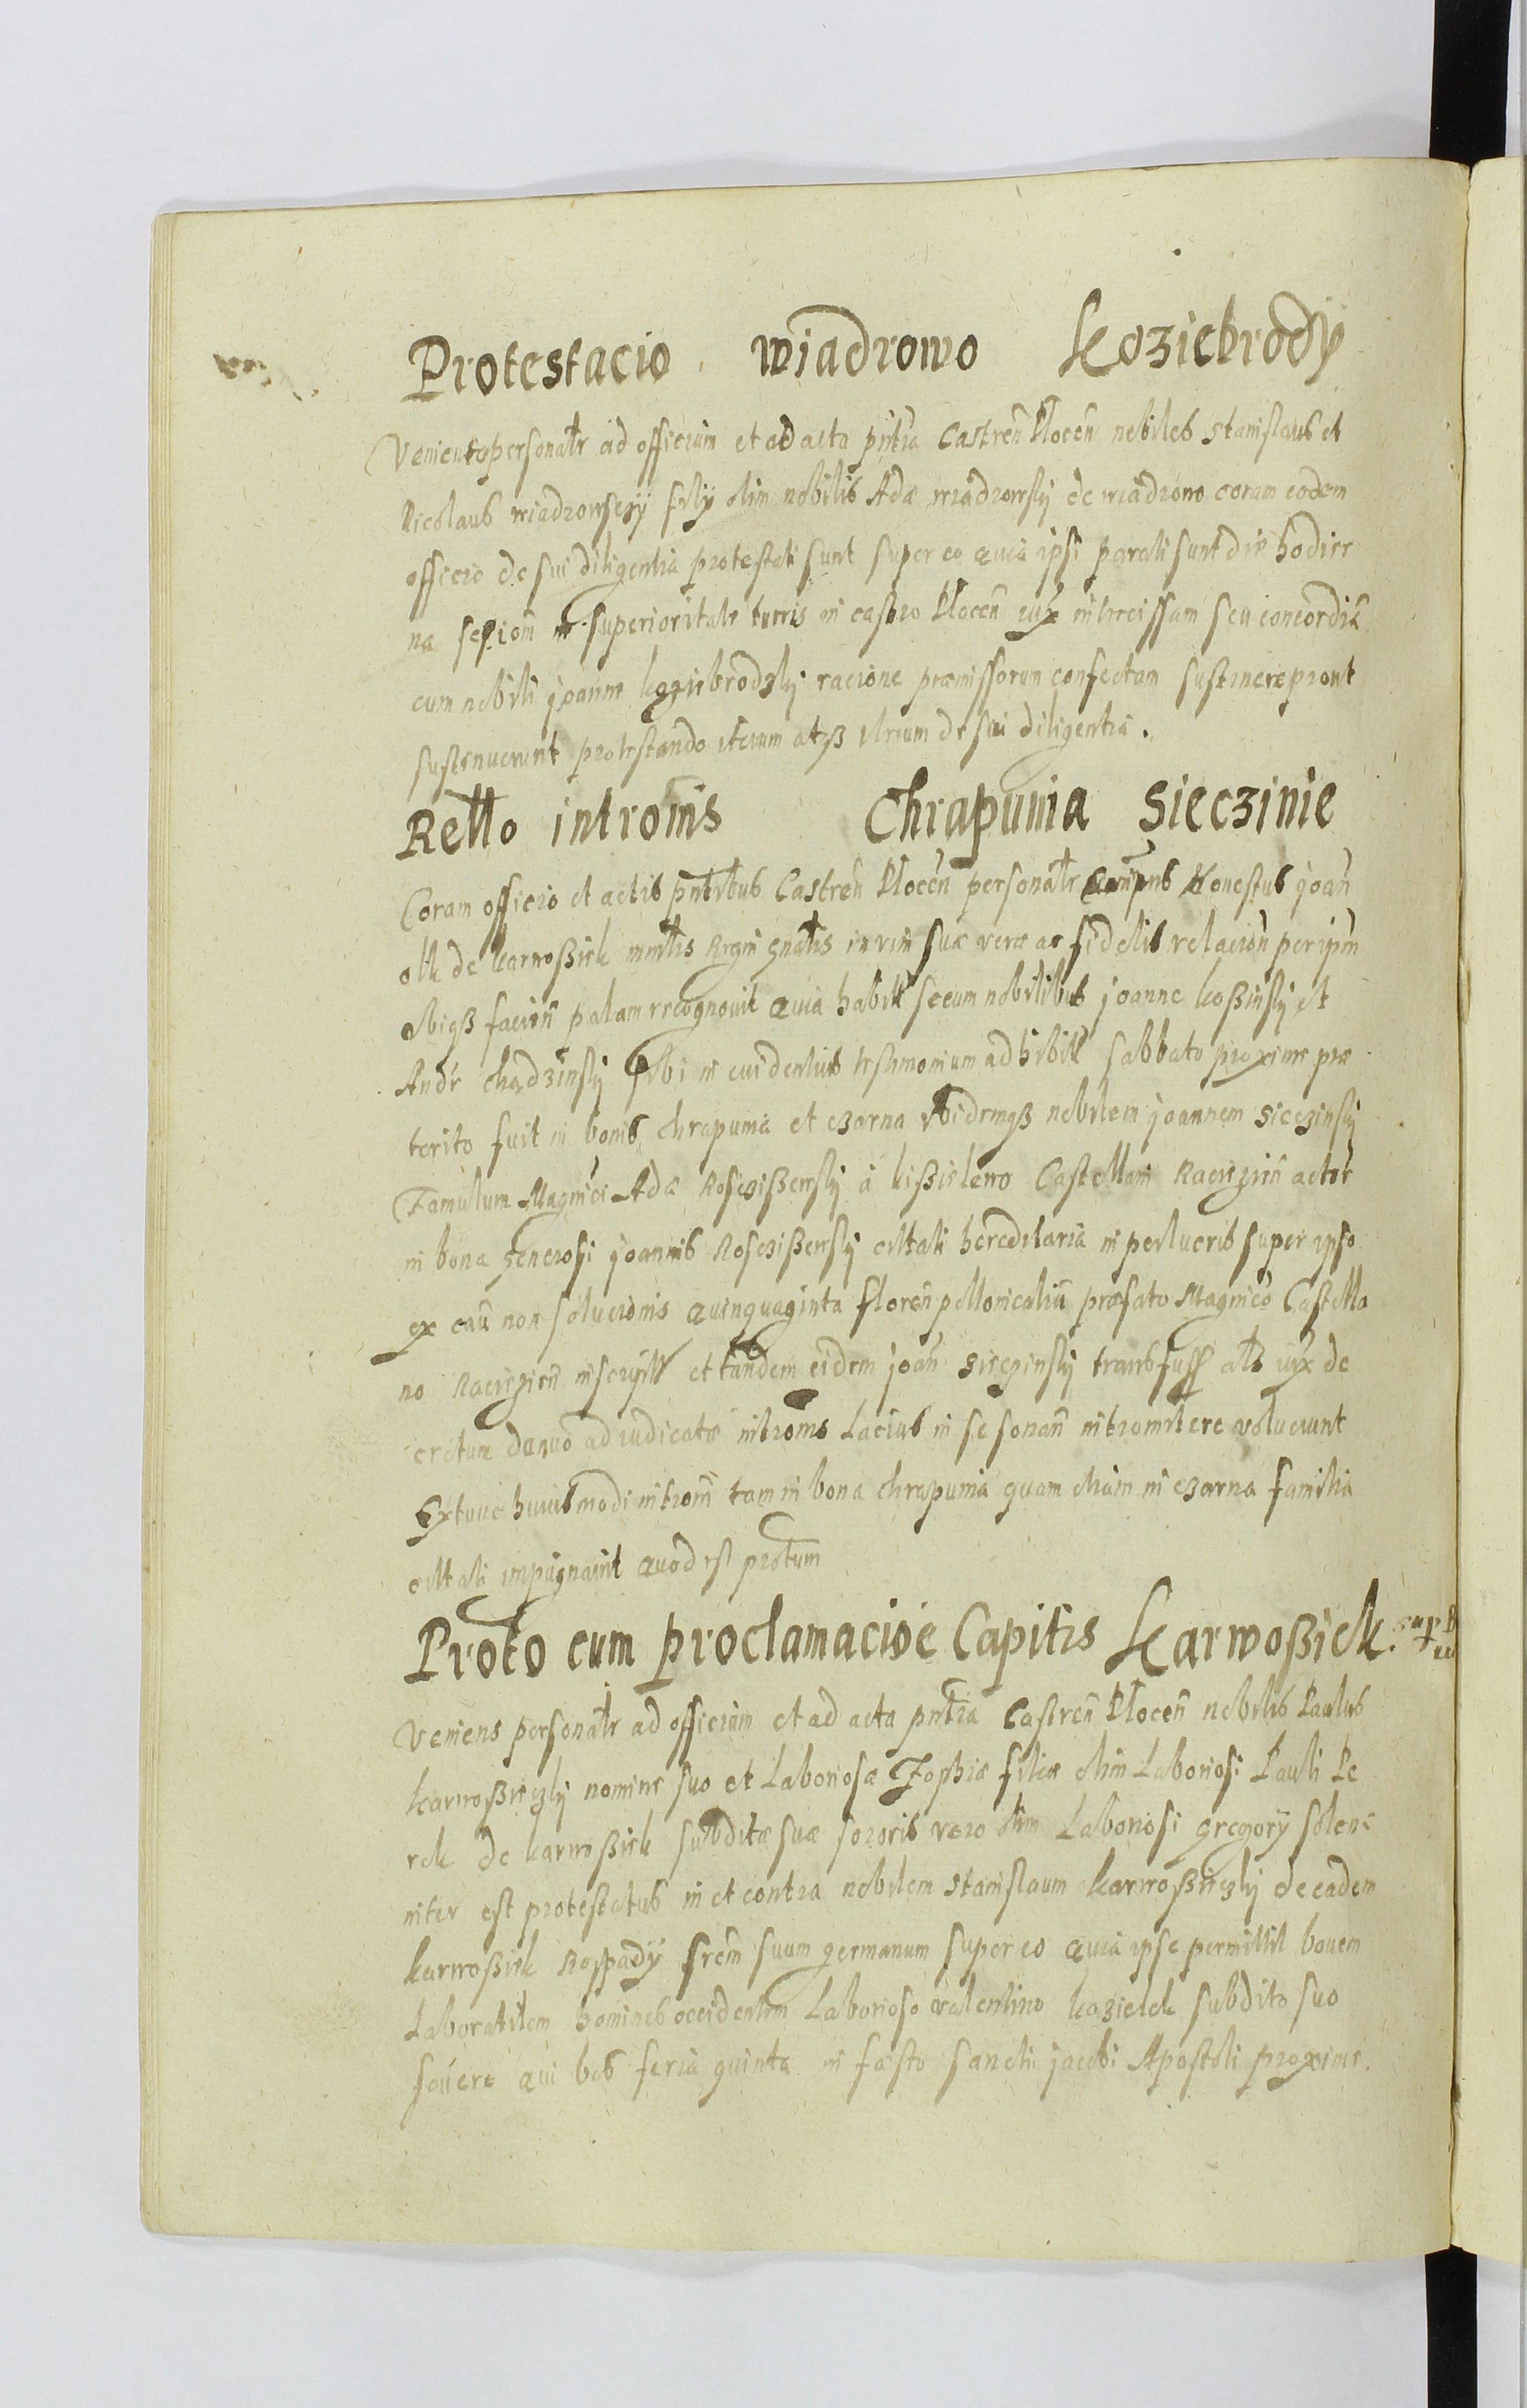 Protestacio wiadrowo Koziebrody
Venientes personalr ad officium et ad acta pntia Castren Plocen nobiles Stanislaus et
Nicolaus wiadrowsczy filij olim nobilis Adae wiadrowskj de wiadrowo coram eodem
officio de sui diligentia protestati sunt super eo quia ipsi parati sunt die hodier
na sessiom in superioritate turris in castro Plocen iux intercissam seu concordia
cum nobili joanne koziebrodzkj racione praemissorum confectam sustinere prout
sustinuerunt protestando iterum atqß iterum de sui diligentia.
Rello intromis Chrapunia Sieczinie
Coram officio et actis pntibus Castren Plocen personalr honestus joan
olk de karwoßiek minlis Regni gnalis in vim suae verae ac fidelis relacion per ipm
obiqß facien palam recognouit quia habitt secum nobilibus joanne koßinskj et
Andr chądzinskj sibi in euidentius testimonium adhibitt sabbato proxime prae
terito fuit in bonis chrapunia et czarna ibidemqß nobilem joannem Sieczinskj
Famulum Magnici Adae Rosciszewskj a kißielewo Castellani Raciązien actor
in bona generosi joannis Rosciszewskj citati hereditaria in perlucris super ipso
ex cau non solucionis quinquaginta floren pollonicaliu praefato Magnico Castella
no Raciązien inscriptt et tandem eidem joan Sieczinskj transfuss als iux de
cretum denuo adiudicatae introms Lacius in se sonan intromittere voluerunt
Extunc huiusmodi introm tam in bona chrapunia quam etiam in czarna familia
citati impugnauit quod est protum
Proto cum proclamacioe Capitis Karwoßiek.
Veniens personalr ad officium et ad acta pntia Castren Plocen nobilis Paulus
karwoßieczkj nomine suo et Laboriosae Zophiae filiae olim Laboriosi Pauli Pe
rek de karwoßiek subditae suae sororis vero olim Laboriosi gregorij solem
niter est protestatus in et contra nobilem Stanislaum karwoßieczkj de eadem
karwoßiek Rospadij frem suum germanum super eo quia ipse permittit bouem
Laborabilem homines occidentem Laborioso valentino kozielek subdito suo
fouere qui bos feria quinta in fasto sancti jacobi Apostoli proxime.